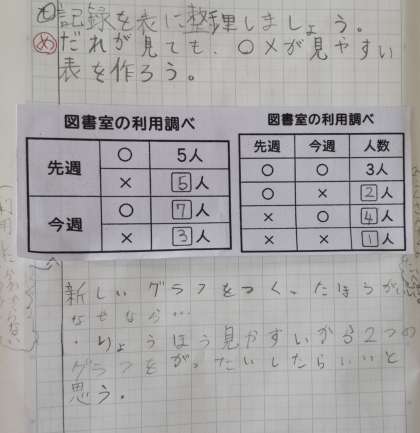 も記録を表に整理しましょう。
めだれが見ても、○×が見やすい
表を作ろう。
図書室の利用調べ
先週 ○ 5人
× 5人
今週 ○ 7人
× 3人
図書室の利用調べ
先週 今週 人数
○ ○ 3人
○ × 2人
× ○ 4人
× × 1人
新しいグラフをつくったほうが
なぜなら…
・りょうほう見やすいから2つの
グラフをがったいしたらいいと
思う。